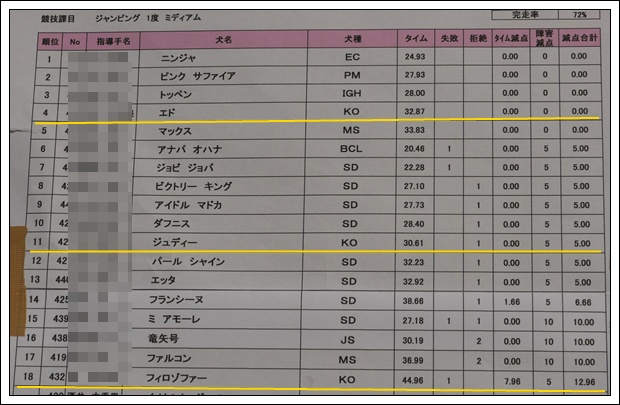 競技課目 ジャンピング 1度 ミディアム 完走率 72%
順位 No 指導手名 犬名 犬種 タイム 失敗 拒絶 タイム減点 障害減点 減点合計
1 ニンジャ EC 24.93 0.00 0 0.00
2 ピンク サファイア PM 27.93 0.00 0 0.00
3 トッペン IGH 28.00 0.00 0 0.00
4 エド KO 32.87 0.00 0 0.00
5 マックス MS 33.83 0.00 0 0.00
6 アナバ オハナ BCL 20.46 1 0.00 5 5.00
7 ジョビ ジョバ SD 22.28 1 0.00 5 5.00
8 ビクトリー キング SD 27.10 1 0.00 5 5.00
9 アイドル マドカ SD 27.73 1 0.00 5 5.00
10 ダフニス SD 28.40 1 0.00 5 5.00
11 ジュディー KO 30.61 1 0.00 5 5.00
12 パール シャイン SD 32.23 1 0.00 5 5.00
13 エッタ SD 32.92 1 0.00 5 5.00
14 フランシーヌ SD 38.66 1 1.66 5 6.66
15 439 ミ アモーレ SD 27.18 1 1 0.00 10 10.00
16 438 竜矢号 JS 30.19 2 0.00 10 10.00
17 419 ファルコン MS 36.99 2 0.00 10 10.00
18 432 フィロゾファー KO 44.96 1 7.96 5 12.96